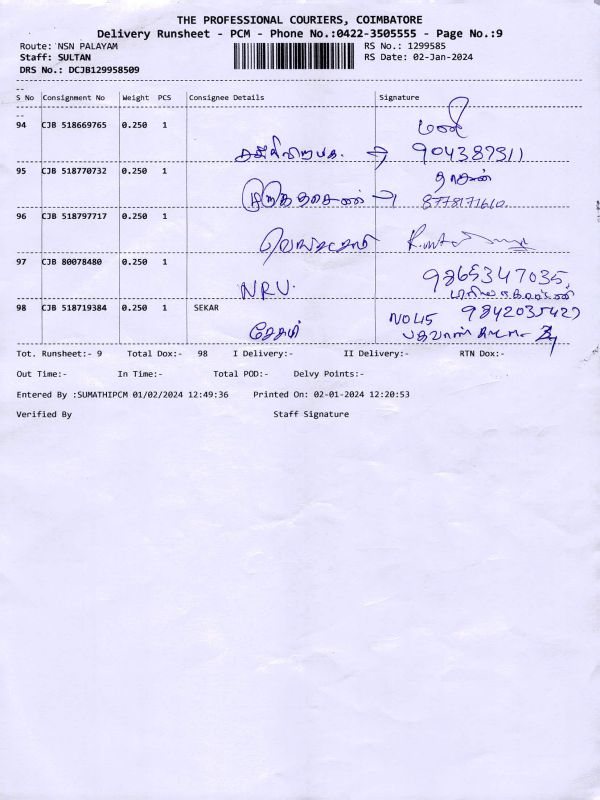 THE PROFESSIONAL COURIERS, COIMBATORE
Delivery Runsheet - PCM - Phone No.:0422-3505555 - Page No.:9
Route: NSN PALAYAM RS No.: 1299585
Staff: SULTAN RS Date: 02-Jan-2024
DRS No.: DCJB129958509
S No Consignment No Weight PCS Consignee Details Signature
94 CJB 518669765 0.250 1
மணி
→ 9043873211
95 CJB 518770732 0.250 1
→ 8778171610.
96 CJB 518797717 0.250 1
97 CJB 80078480 0.250 1 9865347035,
NRV.
98 CJB 518719384 0.250 1 SEKAR NO45 9842035427
சேகர்
Tot. Runsheet:- 9 Total Dox:- 98 I Delivery:- II Delivery:- RTN Dox:-
Out Time:- In Time:- Total POD:- Delvy Points:-
Entered By :SUMATHIPCM 01/02/2024 12:49:36 Printed On: 02-01-2024 12:20:53
Verified By Staff Signature